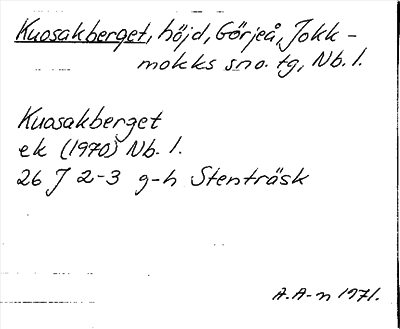 Kuosakberget, höjd, Görjeå, Jokk-
mokks sno. tg, Nb. l.
Kuosakberget
ek (1970) Nb. l.
26 J 2-3 g-h Stenträsk
A.A-n 1971.